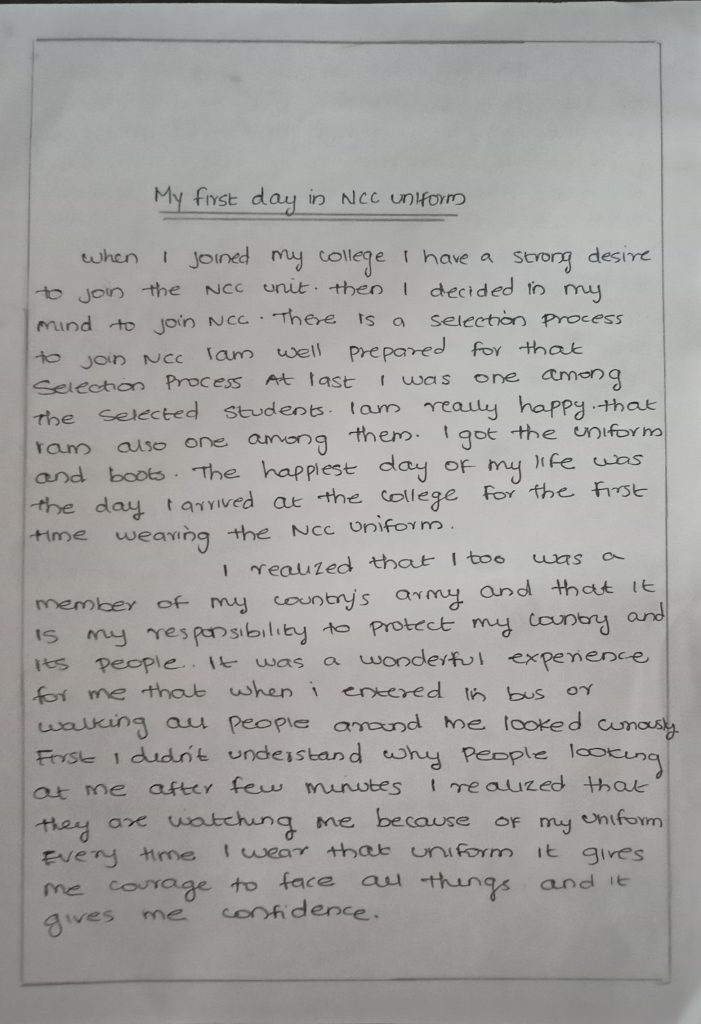 My first day in NCC uniform
when I joined my college I have a strong desire
to join the NCC unit. then I decided in my
mind to join NCC. There is a selection process
to join NCC Iam well prepared for that
Selection Process At last I was one among
the selected students. Iam really happy. that
Iam also one among them. I got the uniform
and boots. The happiest day of my life was
the day I arrived at the college for the first
time wearing the NCC uniform.
I realized that I too was a
member of my country's army and that it
is my responsibility to protect my country and
its people.. It was a wonderful experience
for me that when i entered in bus or
walking all people around me looked curiously
First I didn't understand why people looking
at me after few minutes I realized that
they are watching me because of my uniform
Every time I wear that uniform it gives
me courage to face all things and it
gives me confidence.